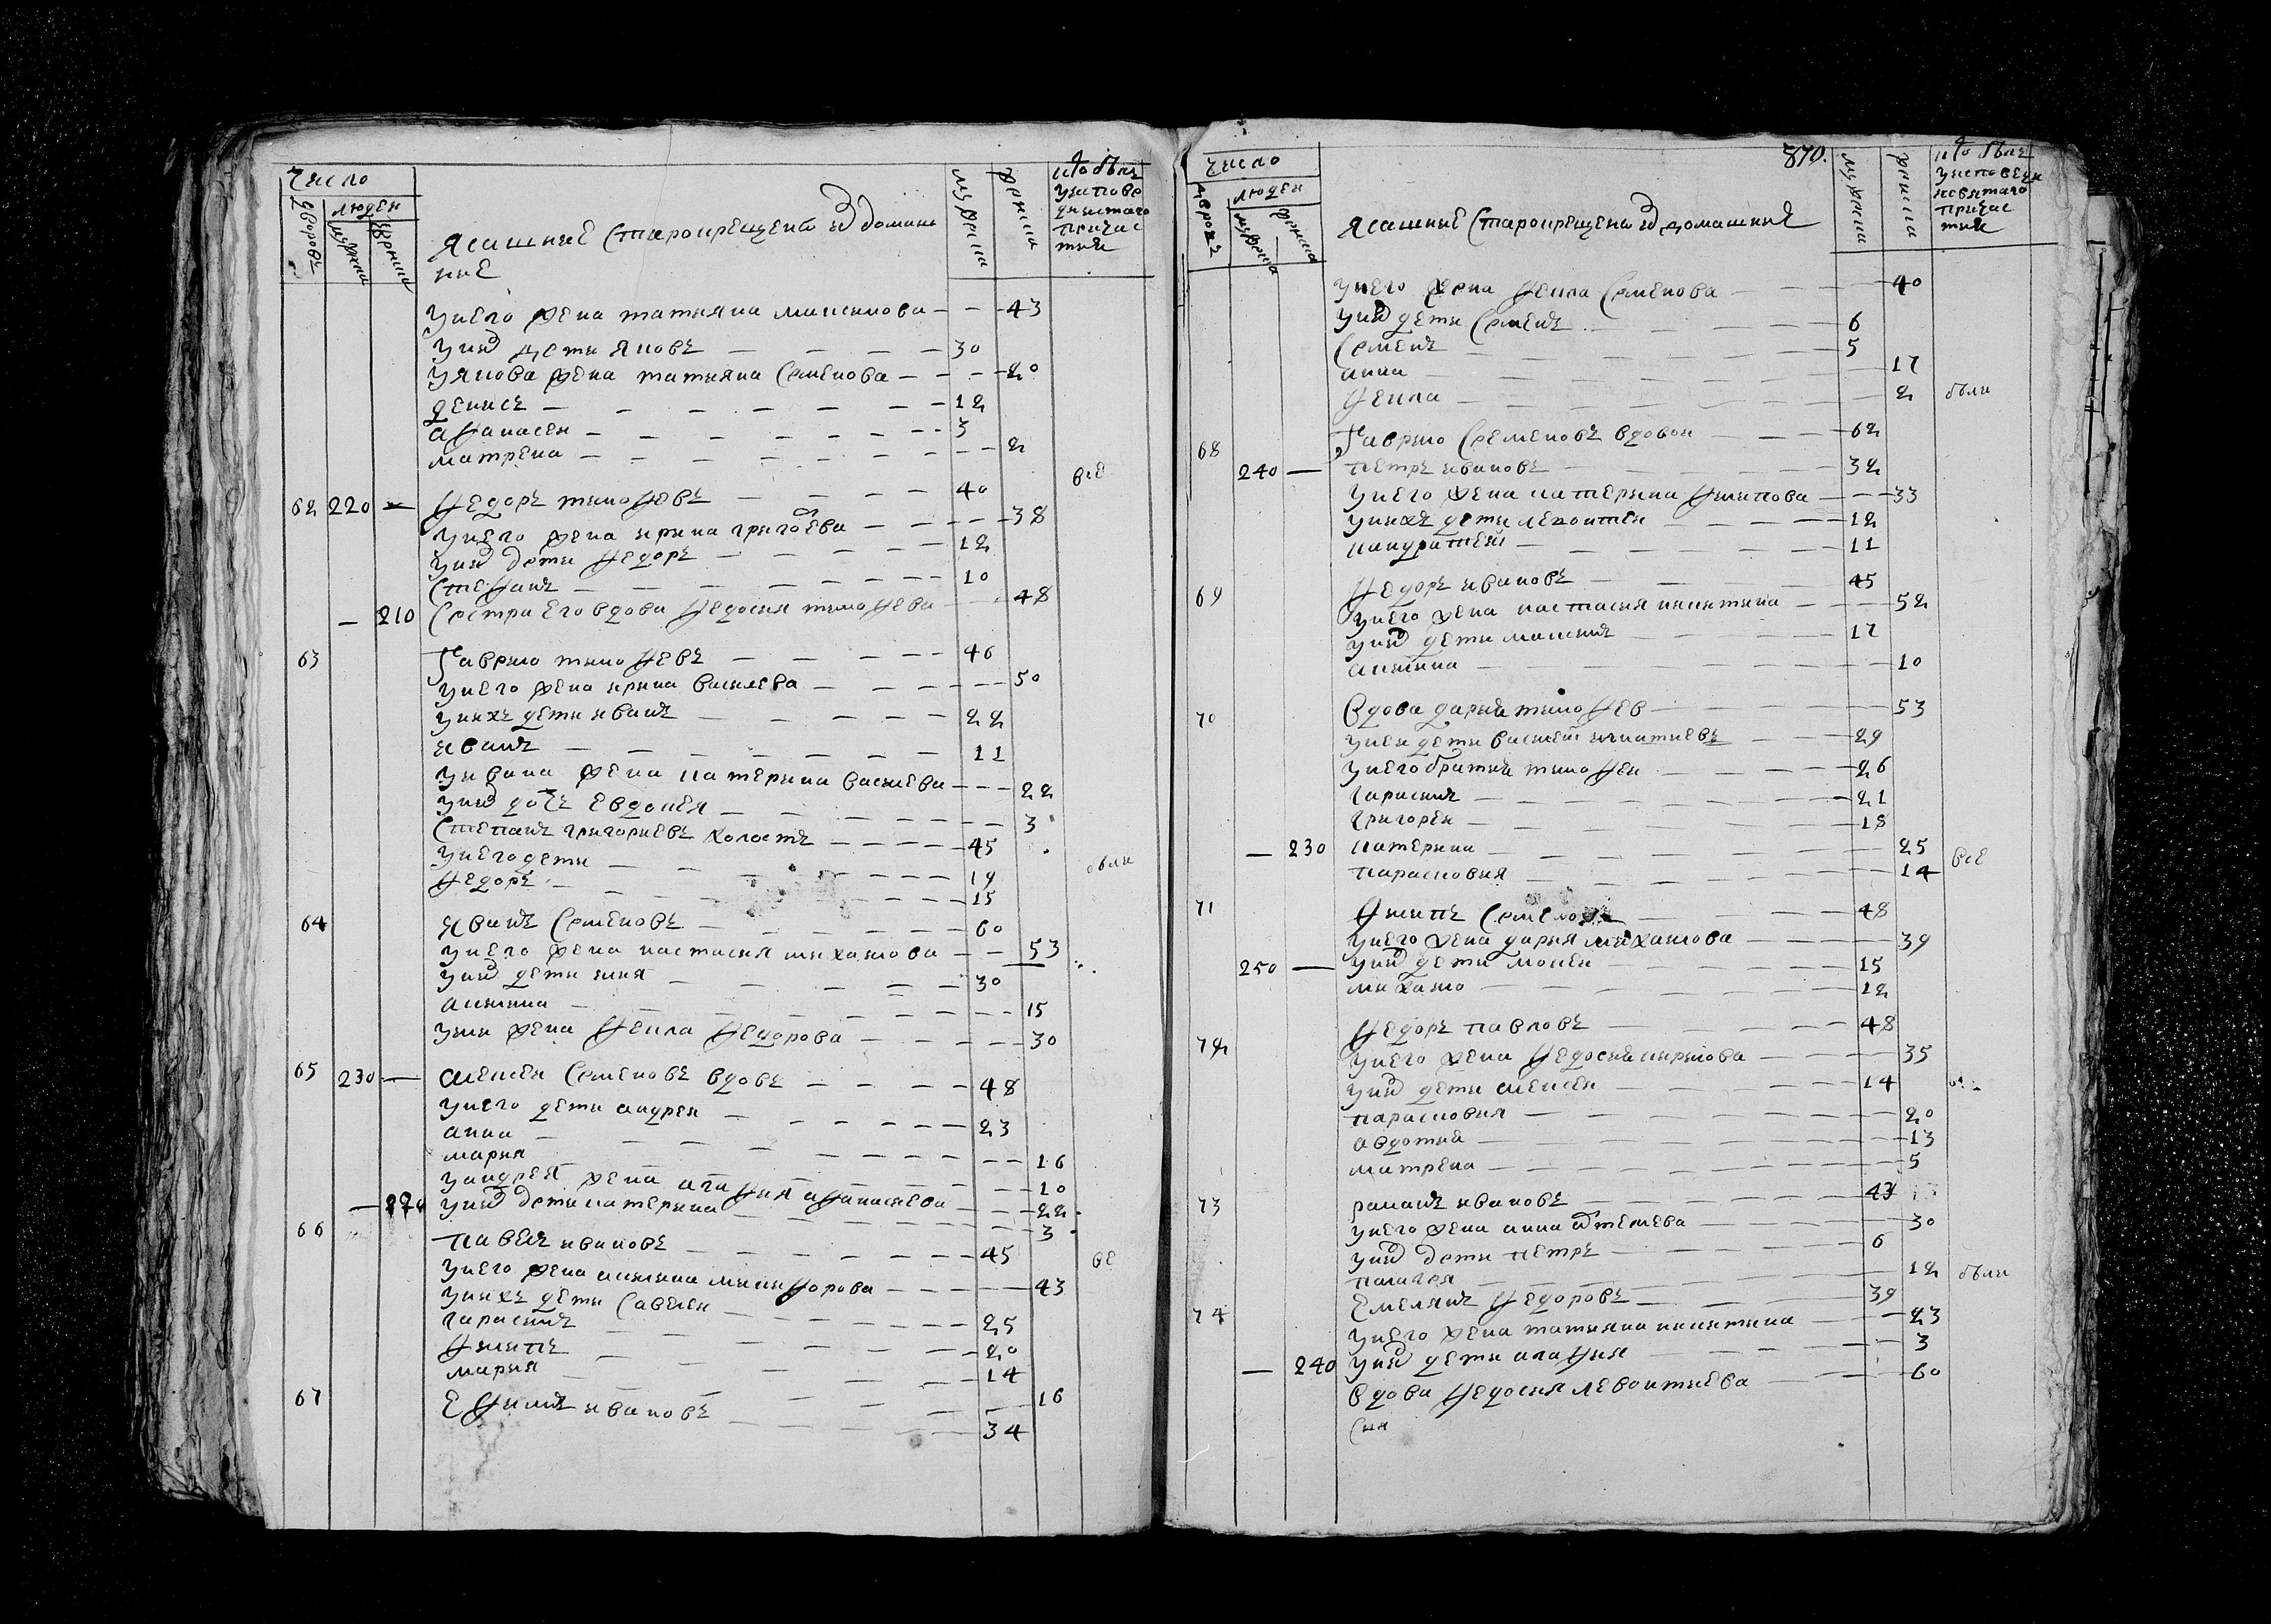 число
дворовъ
людеи
мужеска
женска
Ясашние старокрещены и домаш
ние
мужеска
женска
кто былъ
у испове
ди и стаго
причас
тия
У него жена татияна максимова 43
У них дети яковъ 30
У якова жена татияна семенова 20
денисъ 12
афанасеи 3
матрена 2
все
62 220 федоръ тимофевъ 40
У него жена ирина григоева 38
У них дети федоръ 12
стефанъ 10
210 сестра его вдова федосия тимофева 48
63 Гаврило тимофевъ 46
У него жена ирина василева 50
У нихъ дети иванъ 22
иванъ 11
У ивана жена катерина василева 22
У них дочь евдокея 3
степанъ григориевъ холостъ 45
У него дети 19
федоръ 15
были
64 иванъ семеновъ 60
У него жена настасия михаилова 53
У них дети илия 30
аксиниа 15
У или жена фекла федорова 30
65 230 алексеи семеновъ вдовъ 48
У него дети андреи 23
анна 16
мария 10
У андрея жена агафия афанасиева 22
220 У них дети катерина 3
66 павелъ ивановъ 45
ве
У него жена аксиниа никифорова 43
У нихъ дети савелеи 25
гарасимъ 20
филипъ 14
мария 16
67 Ефимъ ивановъ 34
870.
число
дворовъ
людеи
мужеска
женска
Ясашние старокрещены и домашние
мужеска
женска
кто былъ
у исповеди
и святаго
причас
тия
У него жена фекла семенова 40
У них дети семенъ 6
семенъ 5
анна 17
фекла 2
были
68 Гаврило семеновъ вдовои 62
240 петръ ивановъ 32
У него жена катерина филипова 33
У нихъ дети леконтеи 12
кандратеи 11
69 федоръ ивановъ 45
У него жена настасия никитина 52
У них дети максимъ 17
аксиниа 10
70 Вдова дария тимофев 53
У неи дети василеи игнатиевъ 29
У него братия тимофеи 26
гарасимъ 21
григореи 18
230 катерина 25
парасковия 14
все
71 филипъ семеновъ 48
У него жена дария михаилова 39
250 У них дети мосеи 15
михаило 12
72 федоръ павловъ 48
У него жена федосия кирилова 35
У них дети алексеи 14
парасковия 20
авдотия 13
матрена 5
73 раманъ ивановъ 43
У него жена анна 30
У них дети петръ 6
палагея 12
были
74 Емелянъ федоровъ 39
У него жена татияна никитина 23
240 У них дети агафия 3
вдова федосия левонтиева 60
сия